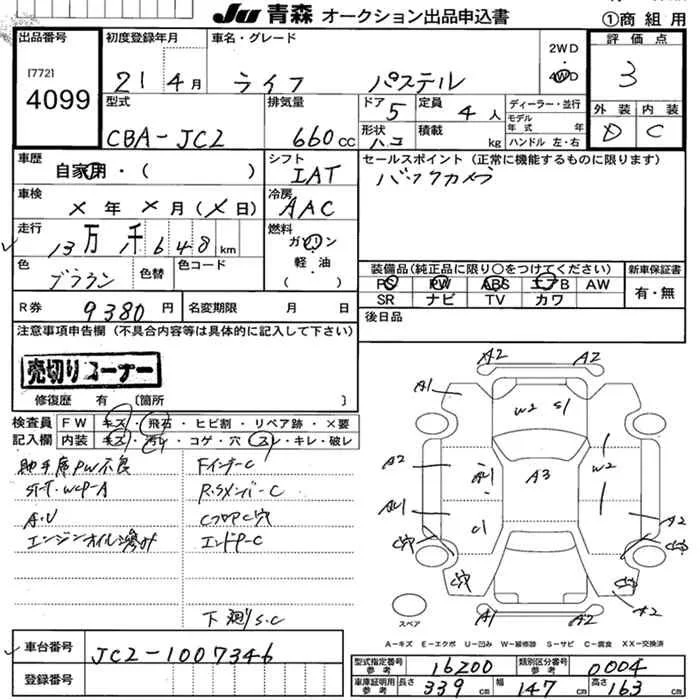 JU 青森 オークション出品申込書
①商 組 用
出品番号
[772]
4099
初度登録年月
21 4月
車名・グレード
ライフ パステル
2WD
4WD
評価点
3
型式
CBA-JC2
排気量
660cc
ドア 5
定員 4人
形状 ハコ
積載 kg
ディーラー・並行
モデル年式 年式
ハンドル 左・右
外装 内装
D C
車歴
自家用・( )
シフト
IAT
セールスポイント(正常に機能するものに限ります)
バックカメラ
車検
×年×月(×日)
冷房
AAC
走行
13万 千648km
燃料
ガソリン
軽・油
( )
色
ブラウン
色替
色コード
装備品(純正品に限り○をつけてください)
PS PW ABS エアB AW
SR ナビ TV カワ
新車保証書
有・無
R券 9380円
名変期限 月 日
後日品
注意事項申告欄(不具合内容等は具体的に記入して下さい)
売切りコーナー
修復歴 有 〔箇所 〕
検査員 FW キズ・飛石・ヒビ割・リペア跡・×要
記入欄 内装 キズ・汚レ・コゲ・穴・スレ・キレ・破レ
助手席PW不良
ST-T・WCP-A
A・U
エンジンオイル滲み
FインナーC
R・SメンバーC
CフロアC穴
エンドP-C
下廻りS.C
A2 A2
A1
W2 S1
A2
A3
W2
AU1
AU1
C1
A2
C穴
C穴
C穴
A2
A1 A2
スペア
A－キズ E－エクボ U－凹み W－補修跡 S－サビ C－腐食 XX－交換済
車台番号
JC2-1007346
登録番号
型式指定番号 参考 16200
類別区分番号 参考 0004
車庫証明用 参考 長さ 339cm 幅 147cm 高さ 163cm